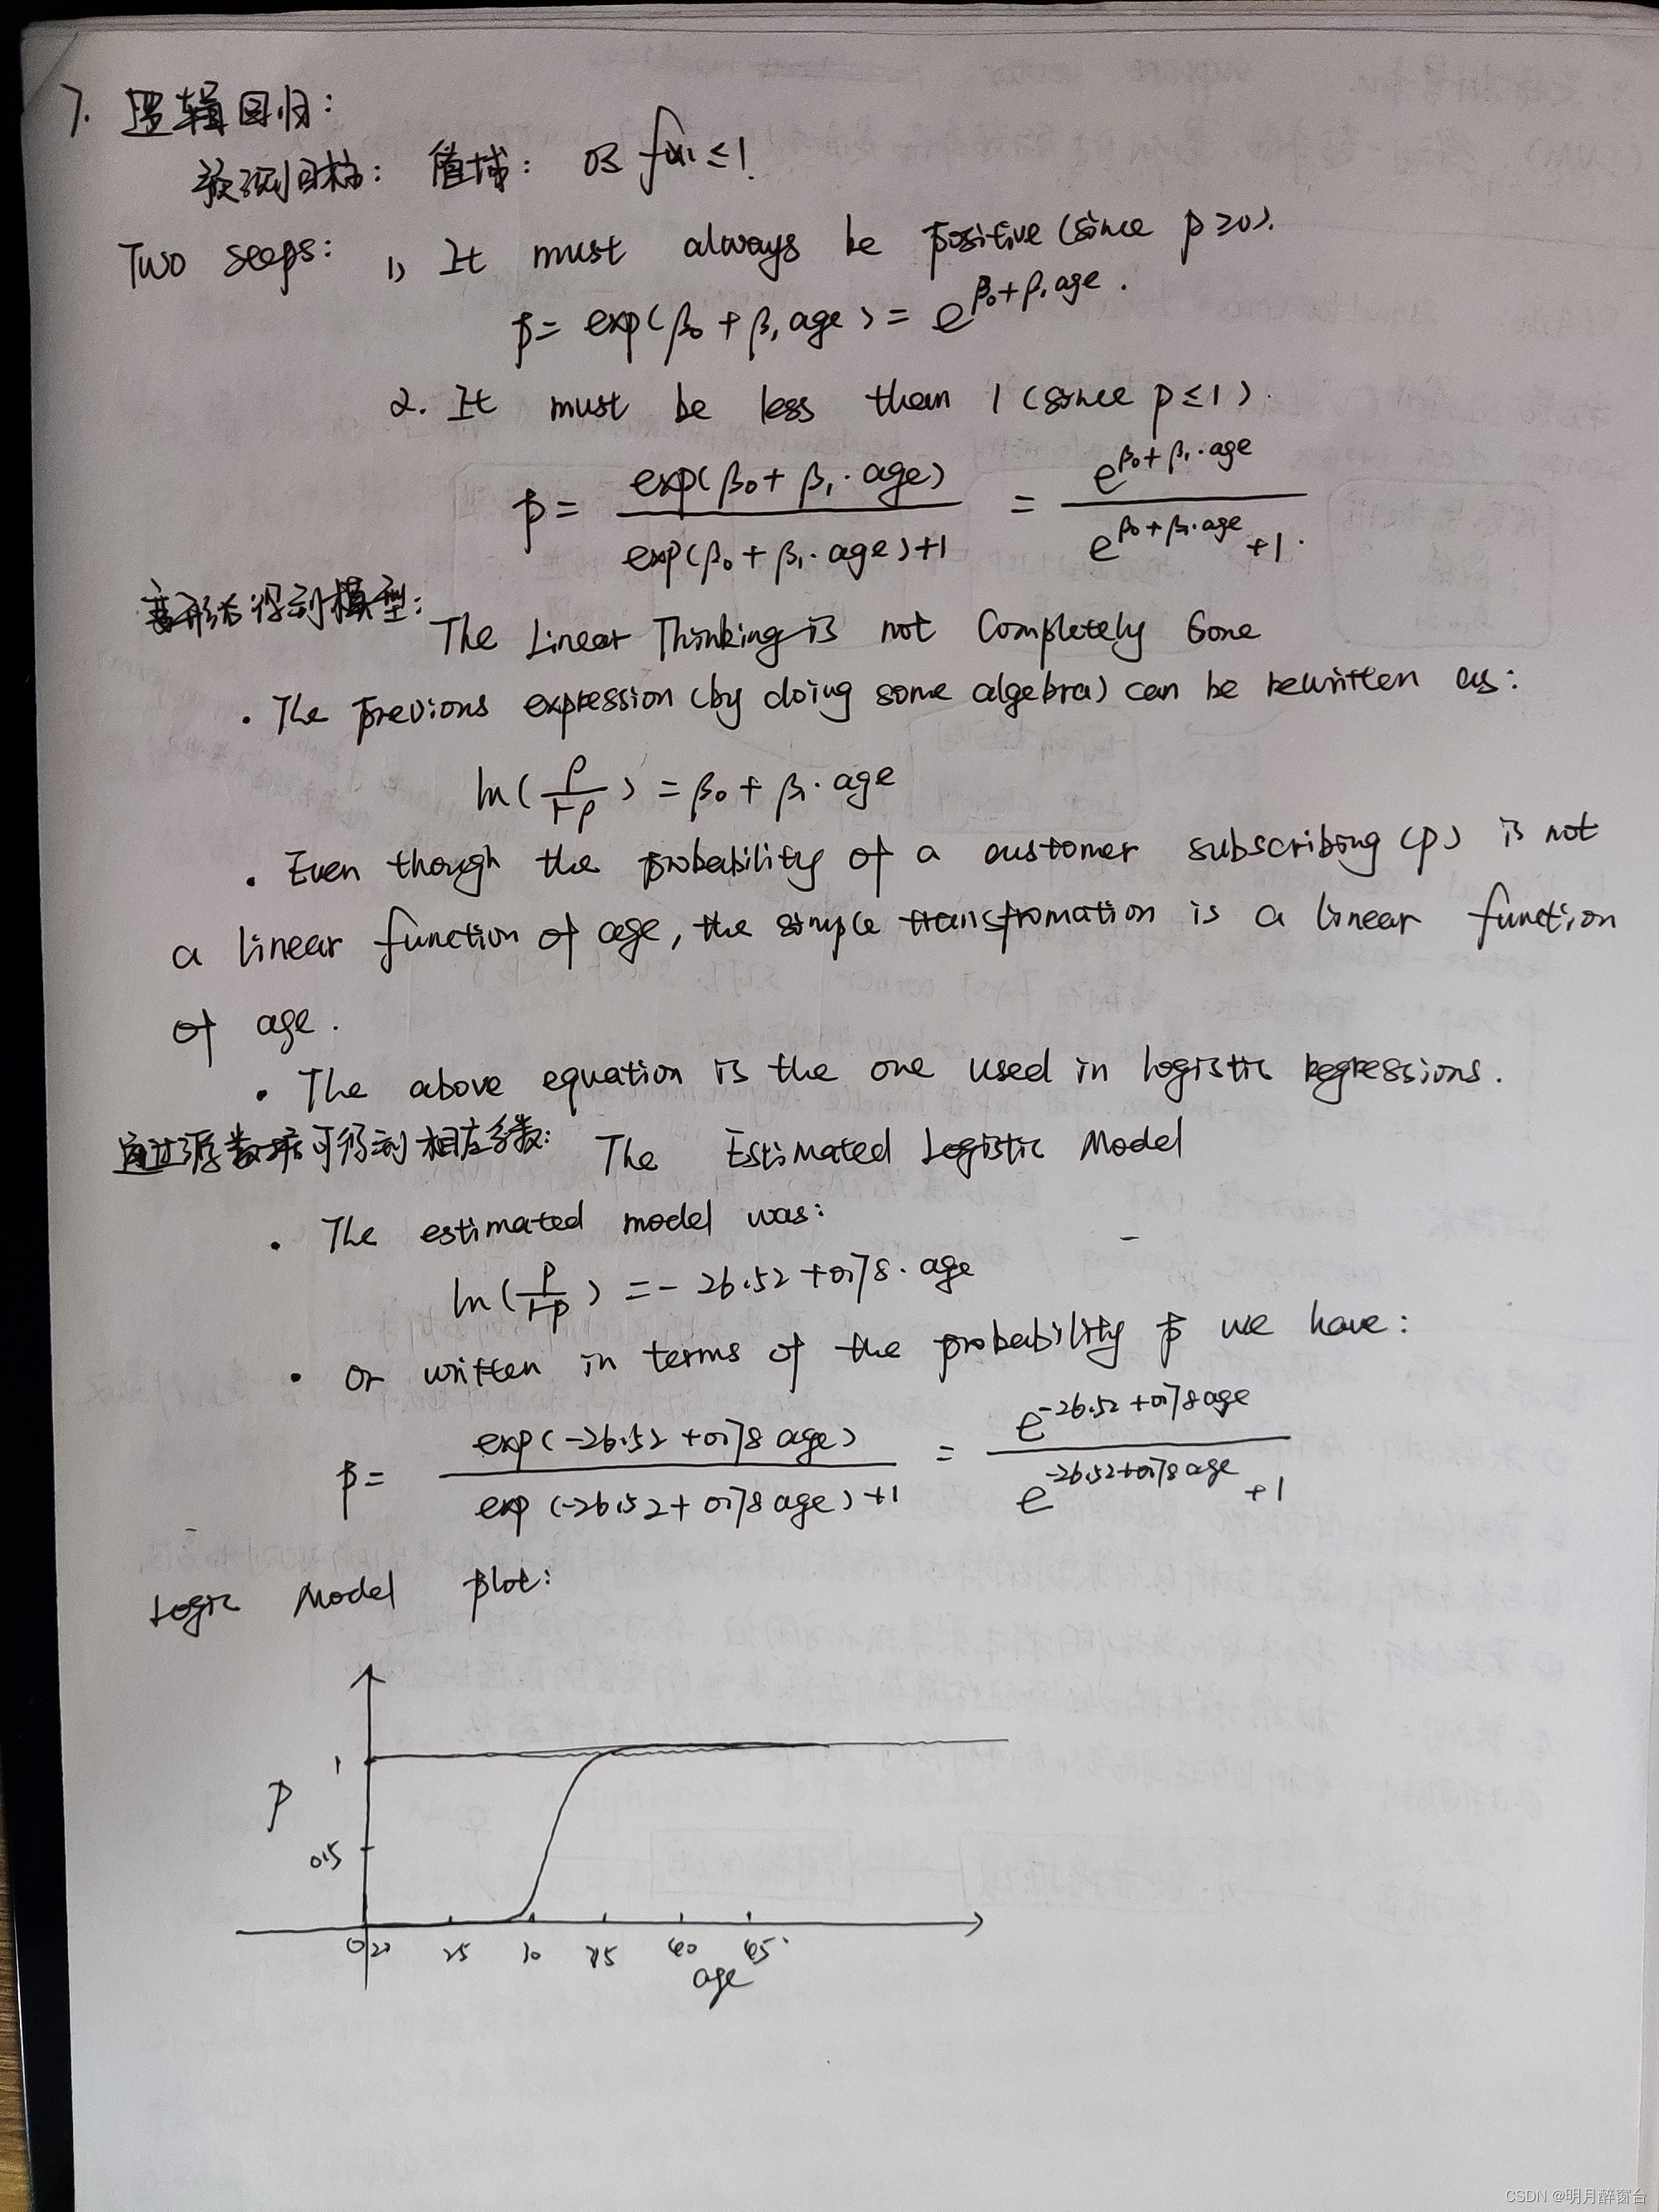 7. 逻辑回归:
预测目标: 值域: 0≤f(x)≤1
Two steps: 1) It must always be positive (since p≥0).
p = exp(β₀ + β₁age) = e^(β₀+β₁age).
2. It must be less than 1 (since p≤1).
p = exp(β₀ + β₁·age) / (exp(β₀ + β₁·age)+1) = e^(β₀+β₁·age) / (e^(β₀+β₁·age) +1).
变形后得到模型: The Linear Thinking is not Completely Gone
• The previous expression (by doing some algebra) can be rewritten as:
ln(p/(1-p)) = β₀ + β₁·age
• Even though the probability of a customer subscribing (p) is not
a linear function of age, the simple transfromation is a linear function
of age.
• The above equation is the one used in logistic regressions.
通过源数据可得到相应系数: The Estimated Logistic Model
• The estimated model was:
ln(p/(1-p)) = -26.52 + 0.78·age
• Or written in terms of the probability p we have:
p = exp(-26.52 + 0.78 age) / (exp(-26.52 + 0.78 age) + 1) = e^(-26.52+0.78age) / (e^(-26.52+0.78age) +1)
Logic Model plot:
1
p
0.5
0 20 25 30 35 40 45
age
CSDN @明月醉窗台